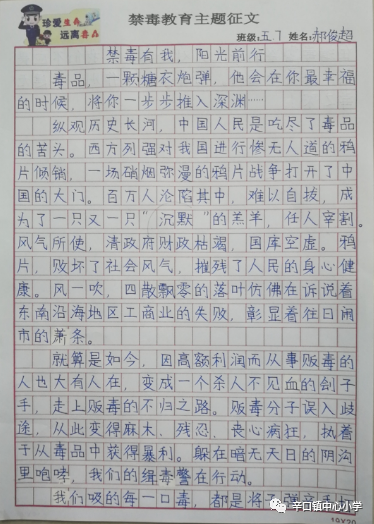 珍爱生命
远离毒品
禁毒教育主题征文
班级:五.7 姓名:郝俊超
禁毒有我，阳光前行
毒品，一颗糖衣炮弹，他会在你最幸福
的时候，将你一步步推入深渊……
纵观历史长河，中国人民是吃尽了毒品
的苦头。西方列强对我国进行惨无人道的鸦
片倾销，一场硝烟弥漫的鸦片战争打开了中
国的大门。百万人沦陷其中，难以自拔，成
为了一只又一只“沉默”的羔羊，任人宰割。
风气所使，清政府财政枯竭，国库空虚。鸦
片，败坏了社会风气，摧残了人民的身心健
康。风一吹，四散飘零的落叶仿佛在诉说着
东南沿海地区工商业的失败，彰显着往日闹
市的萧条。
就算是如今，因高额利润而从事贩毒的
人也大有人在，变成一个杀人不见血的刽子
手，走上贩毒的不归之路。贩毒分子误入歧
途，从此变得麻木、残忍、丧心病狂，执着
于从毒品中获得暴利。躲在暗无天日的阴沟
里咆哮，我们的缉毒警在行动。
我们吸的每一口毒，都是将子弹
辛口镇中心小学